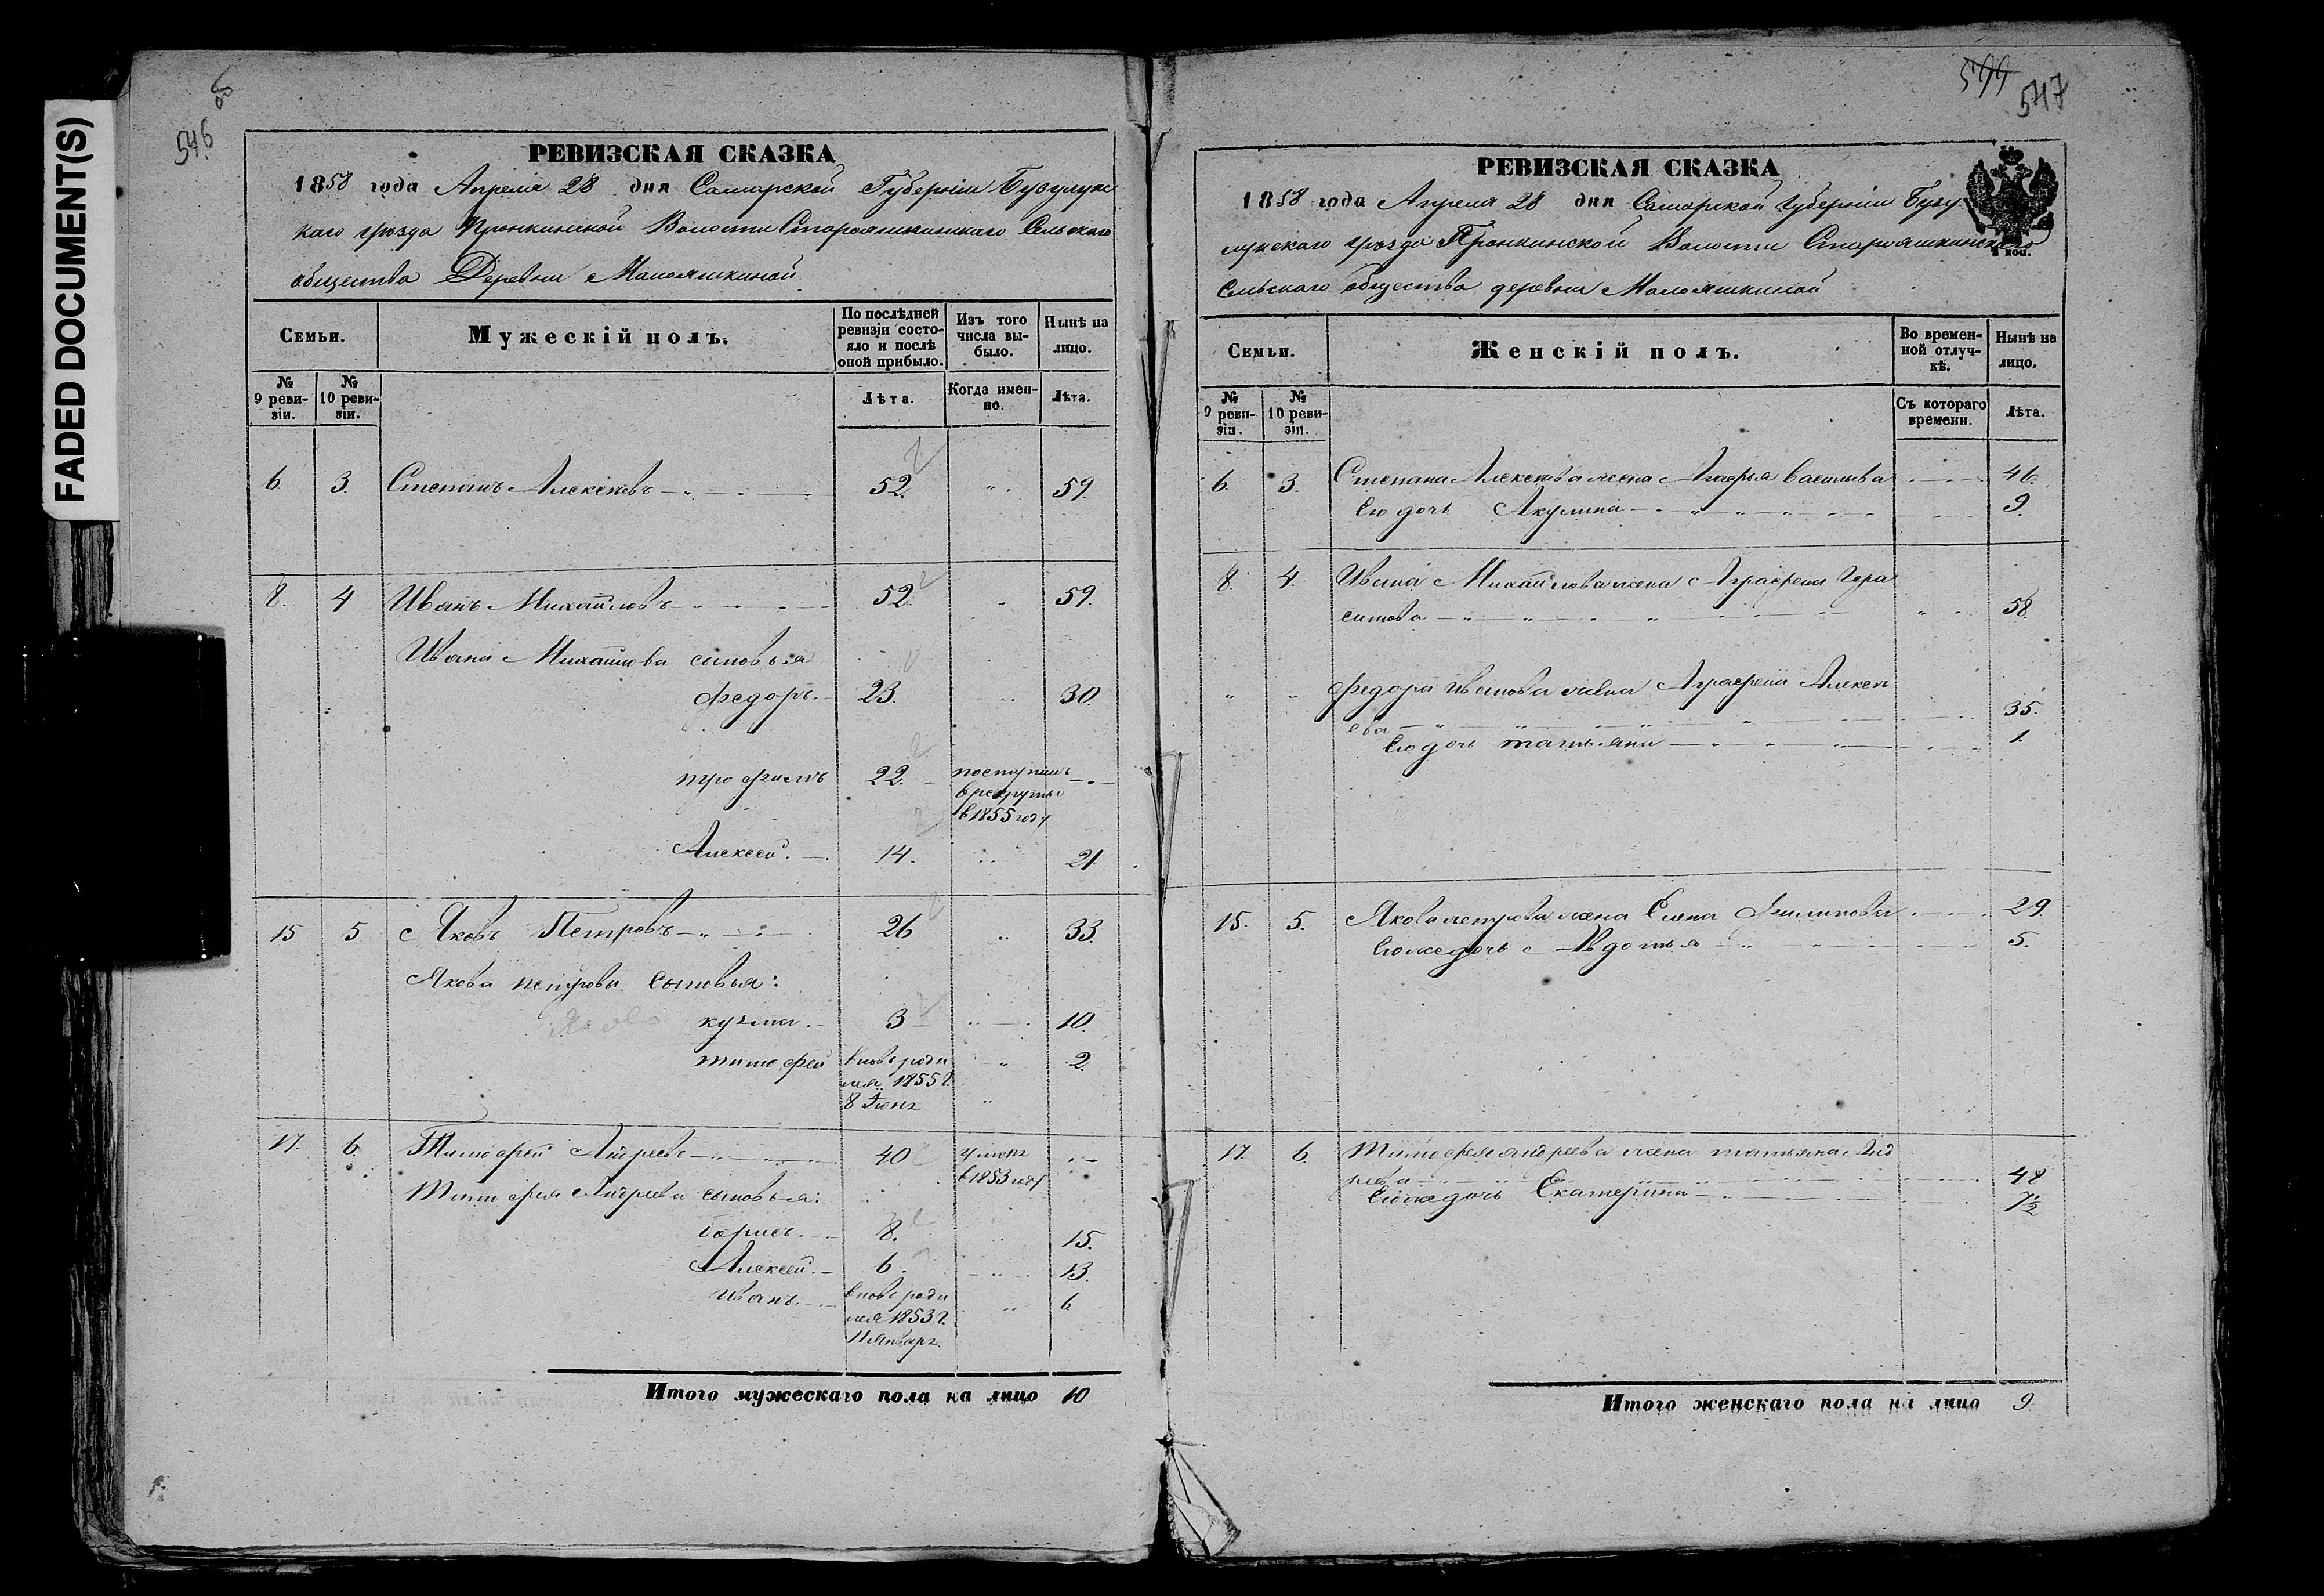 FADED DOCUMENT(S)
546
РЕВИЗСКАЯ СКАЗКА
1858 года Апреля 28 дня Самарской Губерніи Бузулукс
каго уѣзда Пронкинской Волости Старояшкинскаго Сельскаго
общества Деревни Малояшкиной
Семьи.
Мужескій полъ.
По послѣдней ревизіи состояло и послѣ оной прибыло.
Изъ того числа выбыло.
Нынѣ на лицо.
№ 9 ревизіи.
№ 10 ревизіи.
Лѣта.
Когда именно.
Лѣта.
6. 3. Степанъ Алексѣевъ 52. 59.
8. 4 Иванъ Михайловъ 52. 59.
Ивана Михайлова сыновья
Федоръ. 23. 30.
трофимъ 22. поступилъ
в рекруты
в 1855 году
Алексей. 14. 21
15 5 Яковъ Петровъ 26 33.
Якова петрова сыновья:
кузма. 3 10.
тимофей вновь роди 2.
лся 1855 г.
8 Июня
17. 6. Тимофей Андреевъ 40 умеръ
в 1853 году
Тимофея Андреева сыновья:
Борисъ. 8. 15.
Алексей. 6. 13.
Иванъ. вновь роди 6
лся 1853 г.
11 Январ.
Итого мужескаго пола на лицо 10
599
547
РЕВИЗСКАЯ СКАЗКА
1858 года Апреля 28 дня Самарской Губерніи Бузу
лукскаго уѣзда Пронкинской Волости Старояшкинскаго
Сельскаго общества деревни Малояшкиной
коп.
Семьи.
Женскій полъ.
Во временной отлучкѣ.
Нынѣ на лицо.
№ 9 ревизіи.
№ 10 ревизіи.
Съ котораго времени.
Лѣта.
6. 3. Степана Алексѣева жена 46.
Ею дочь Акулина 9.
8. 4. Ивана Михайлова жена Аграфена Гера
симова 58.
Федора Иванова жена Аграфена Алексѣ
ева 35.
Ею дочь татьяна 1.
15. 5. Якова петрова жена Елена Филипова 29.
Ею же дочь Авдотья 5.
17. 6. Тимофея андреева жена татьяна Анд
реева 48
Ею же дочь Екатерина 7½
Итого женскаго пола на лицо 9